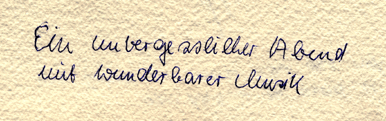 Ein unvergesslicher Abend
mit wunderbarer Musik